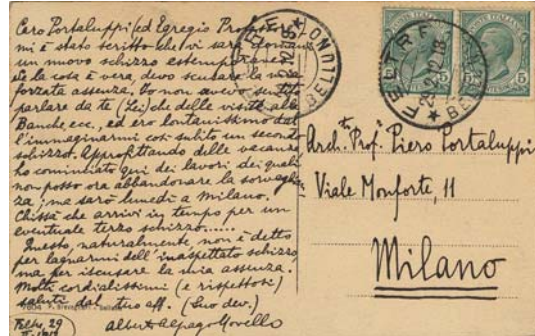 Caro Portaluppi (ed Egregio Professore)
mi è stato scritto che vi sarà domani
un nuovo schizzo estemporaneo
Se la cosa è vera, devo scusare la mia
forzata assenza. Io non avevo sentito
parlare da te (Lei) che delle visite alle
Banche, ecc., ed ero lontanissimo dal
l'immaginarmi così subito un secondo
schizzo. Approfittando delle vacanze
ho cominciato qui dei lavori dei quali
non posso ora abbandonare la sorveglian
za; ma sarò lunedì a Milano.
Chissà che arrivi in tempo per un
eventuale terzo schizzo......
Questo, naturalmente, non è detto
per lagnarmi dell'inaspettato schizzo
ma per iscusare la mia assenza.
Molti cordialissimi (e rispettosi)
saluti dal tuo aff. (Suo dev.)
Alberto Alpago Novello
Feltre, 29
FELTRE
BELLUNO
POSTE ITALIANE
5
POSTE ITALIANE
5
FELTRE
BELLUNO
Arch.to Prof. Piero Portaluppi
Viale Monforte, 11
Milano